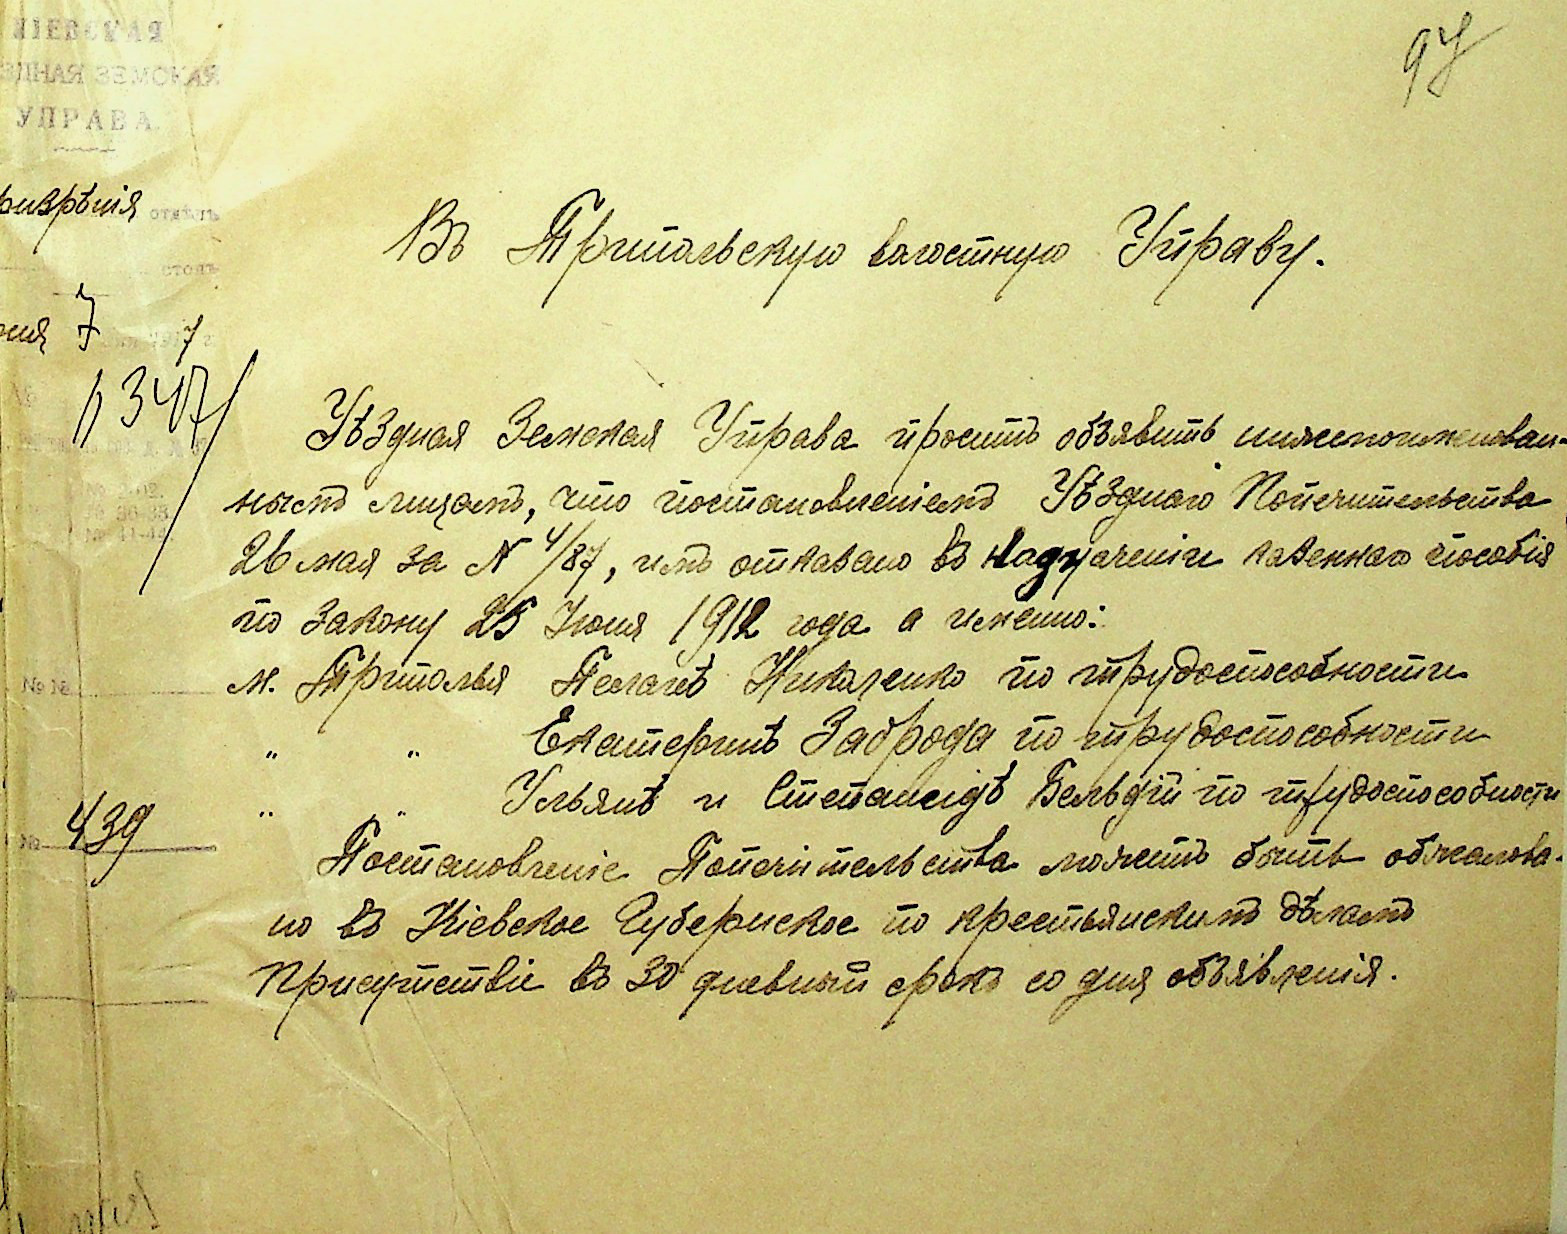 КІЕВСКАЯ
ЗДНАЯ ЗЕМСКАЯ
УПРАВА
97
ризрѣнія
Въ Трипольскую волостную Управу.
7 7
11347/
Уѣздная Земская Управа проситъ объявить нижепоименован-
нымъ лицамъ, что постановленіемъ Уѣзднаго Попечительства
26 мая за № 4/87, имъ отказано въ казеннаго пособія
по закону 25 Июня 1912 года а именно:
м. Триполья Пелагеѣ Николенко по трудоспособности
" " Екатеринѣ Заброда по трудоспособности
" " Ульянѣ и Степанидѣ Бельдій по трудоспособности
439
Постановленіе Попечительства можетъ быть обжалова-
но въ Кіевское Губернское по крестьянскимъ дѣламъ
Присутствіе въ 30 дневный срокъ со дня объявленія.